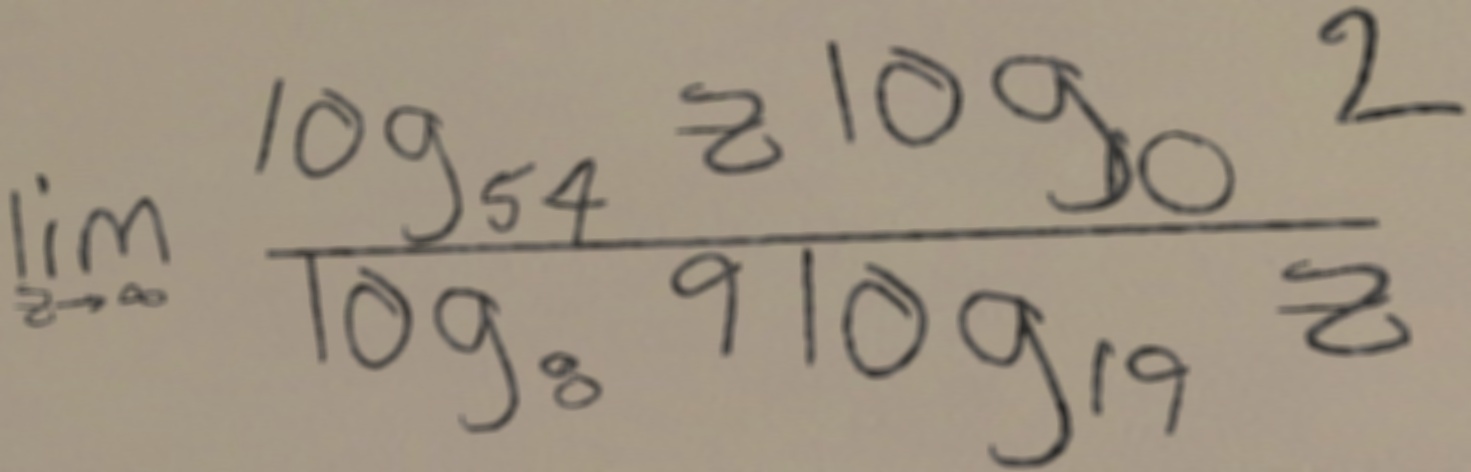 lim z→∞ log₅₄ z log₁₀ 2
log₈ 9 log₁₉ z